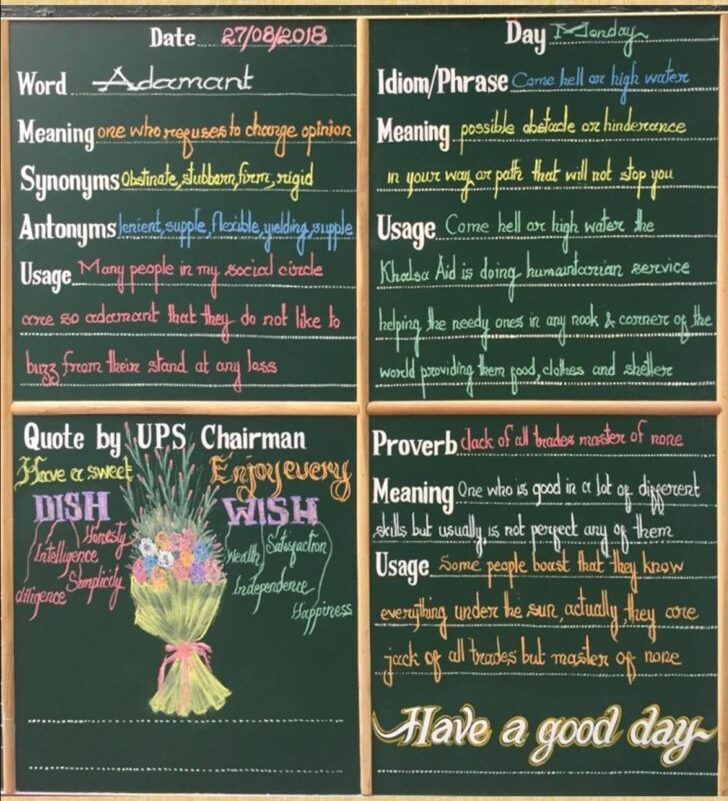 Date 27/08/2018
Word Adamant
Meaning one who refuses to change opinion
Synonyms Obstinate, stubborn, firm, rigid
Antonyms lenient, supple, flexible, yielding, supple
Usage Many people in my social circle
are so adamant that they do not like to
buzz from their stand at any loss
Day Monday
Idiom/Phrase Come hell or high water
Meaning possible obstacle or hinderance
in your way or path that will not stop you
Usage Come hell or high water the
Khalsa Aid is doing humanitarian service
helping the needy ones in any nook & corner of the
world providing them food, clothes and shelter
Quote by UPS Chairman
Have a sweet
DISH
Honesty
Intelligence
Simplicity
diligence
Enjoy every
WISH
Wealth
Satisfaction
Independence
Happiness
Proverb Jack of all trades master of none
Meaning One who is good in a lot of different
skills but usually is not perfect any of them
Usage Some people boast that they know
everything under the sun, actually, they are
jack of all trades but master of none
Have a good day